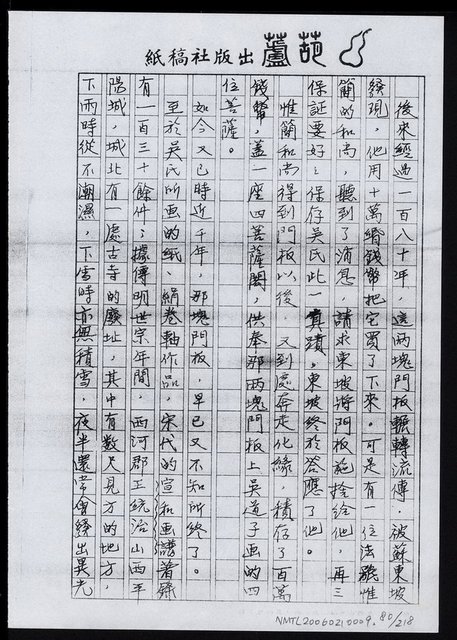 葫蘆出版社稿紙
後來經過一百八十年，這兩塊門板輾轉流傳，被蘇東坡
發現，他用十萬緡錢幣把它買了下來。可是有一位法號惟
簡的和尚，聽到了消息，請求東坡將門板施捨給他，再三
保証要好好保存吳氏此一真蹟。東坡終於答應了他。
惟簡和尚得到門板以後，又到處奔走化緣，積存了百萬
錢幣，蓋一座四菩薩閣，供奉那兩塊門板上吳道子画的四
位菩薩。
如今又已時近千年，那塊門板，早已又不知所終了。
至於吳氏所画的紙、絹卷軸作品，宋代的宣和画譜著錄
有一百三十餘件；據傳明世宗年間，西河郡王統治山西平
陽城，城北有一處古寺的廢址，其中有数尺見方的地方，
下雨時從不潮濕，下雪時亦無積雪，夜半還常會綫出異光
NMTL20060210009. 80/218